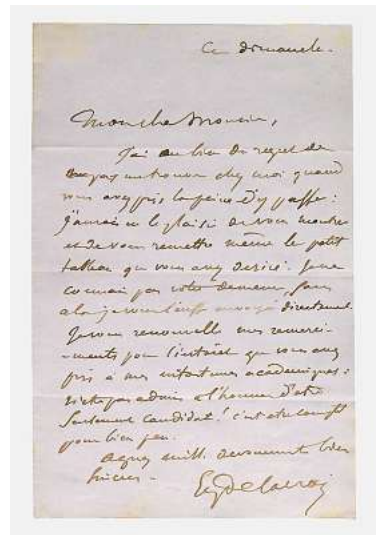 Ce dimanche.
Mon cher Monsieur,
J'ai eu bien du regret de
ne pas me trouver chez moi quand
vous avez pris la peine d'y passer :
j'aurais eu le plaisir de vous montrer
et de vous remettre même le petit
tableau que vous avez désiré. Je ne
connais pas votre demeure, sans
cela je vous l'eusse envoyé directement.
Je vous renouvelle mes remerci-
ements pour l'intérêt que vous avez
pris à mes infortunes académiques :
n'être pas admis à l'honneur d'être
seulement candidat ! c'est être compté
pour bien peu.
Agréez mille dévouements bien
sincères.
Eug Delacroix